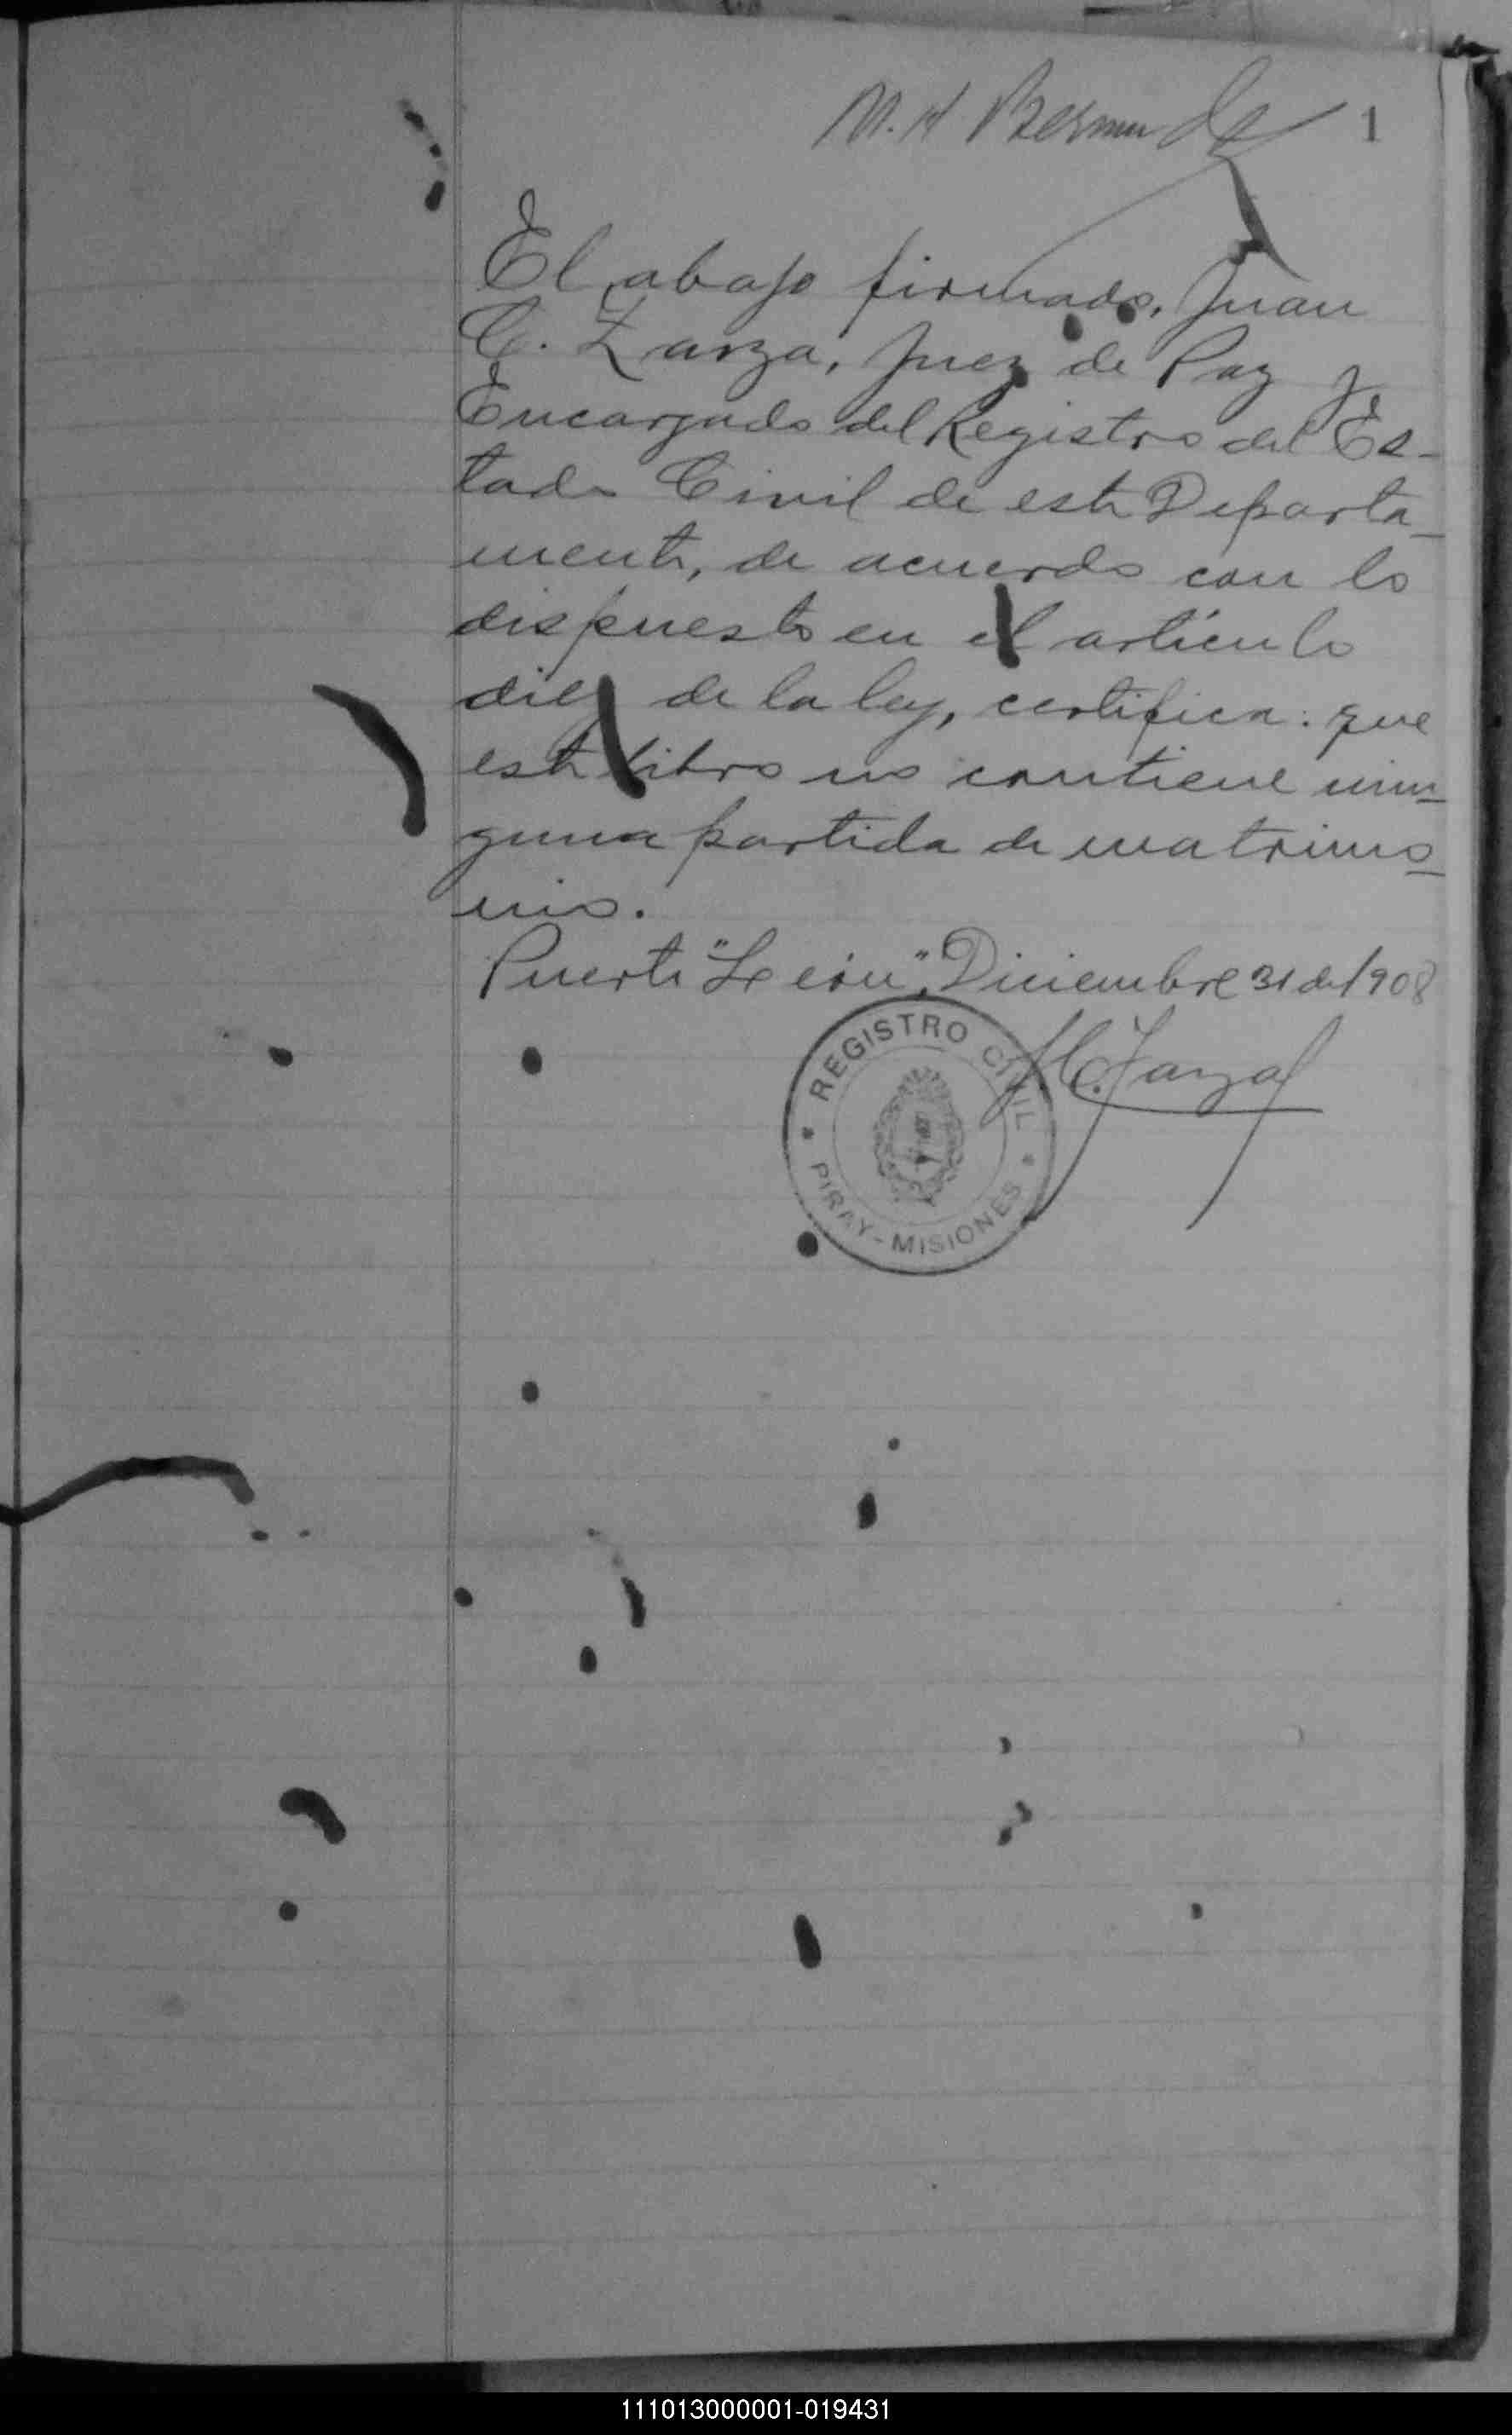 M. H Bermudez 1
El abajo firmado, Juan
C. Zarza, Juez de Paz y
Encargado del Registro del Es-
tado Civil de este Departa-
mento, de acuerdo con lo
dispuesto en el artículo
diez de la ley, certifica: que
este libro no contiene nin-
guna partida de matrimo-
nio.
Puerto "León", Diciembre 31 de 1908
J.C. Zarza
REGISTRO CIVIL
PIRAY-MISIONES
111013000001-019431